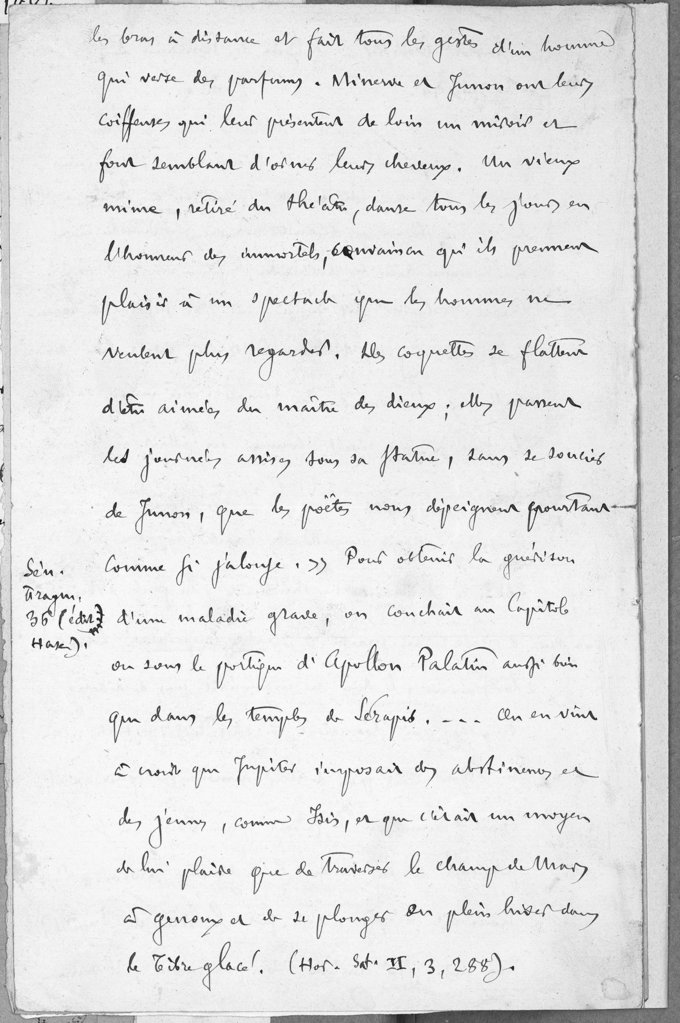 les bras à distance et fait tous les gestes d'un homme
qui verse des parfums. Minerve et Junon ont leurs
coiffeuses qui leur présentent de loin un miroir et
font semblant d'orner leurs cheveux. Un vieux
mime, retiré du théâtre, danse tous les jours en
l'honneur des immortels, convaincu qu'ils prennent
plaisir à un spectacle que les hommes ne
veulent plus regarder. Des coquettes se flattent
d'être aimées du maître des dieux; elles passent
les journées assises sous sa statue, sans se soucier
de Junon, que les poëtes nous dépeignent pourtant
comme si jalouse. » Pour obtenir la guérison
Sén.
Fragm.
36 (édit.
Haase).
d'une maladie grave, on couchait au Capitole
ou sous le portique d'Apollon Palatin aussi bien
que dans les temples de Sérapis. --- On en vint
à croire que Jupiter imposait des abstinences et
des jeunes, comme Isis, et que c'était un moyen
de lui plaire que de traverser le champ de Mars
à genoux et de se plonger en plein hiver dans
le Tibre glacé. (Hor. Sat. II, 3, 288).